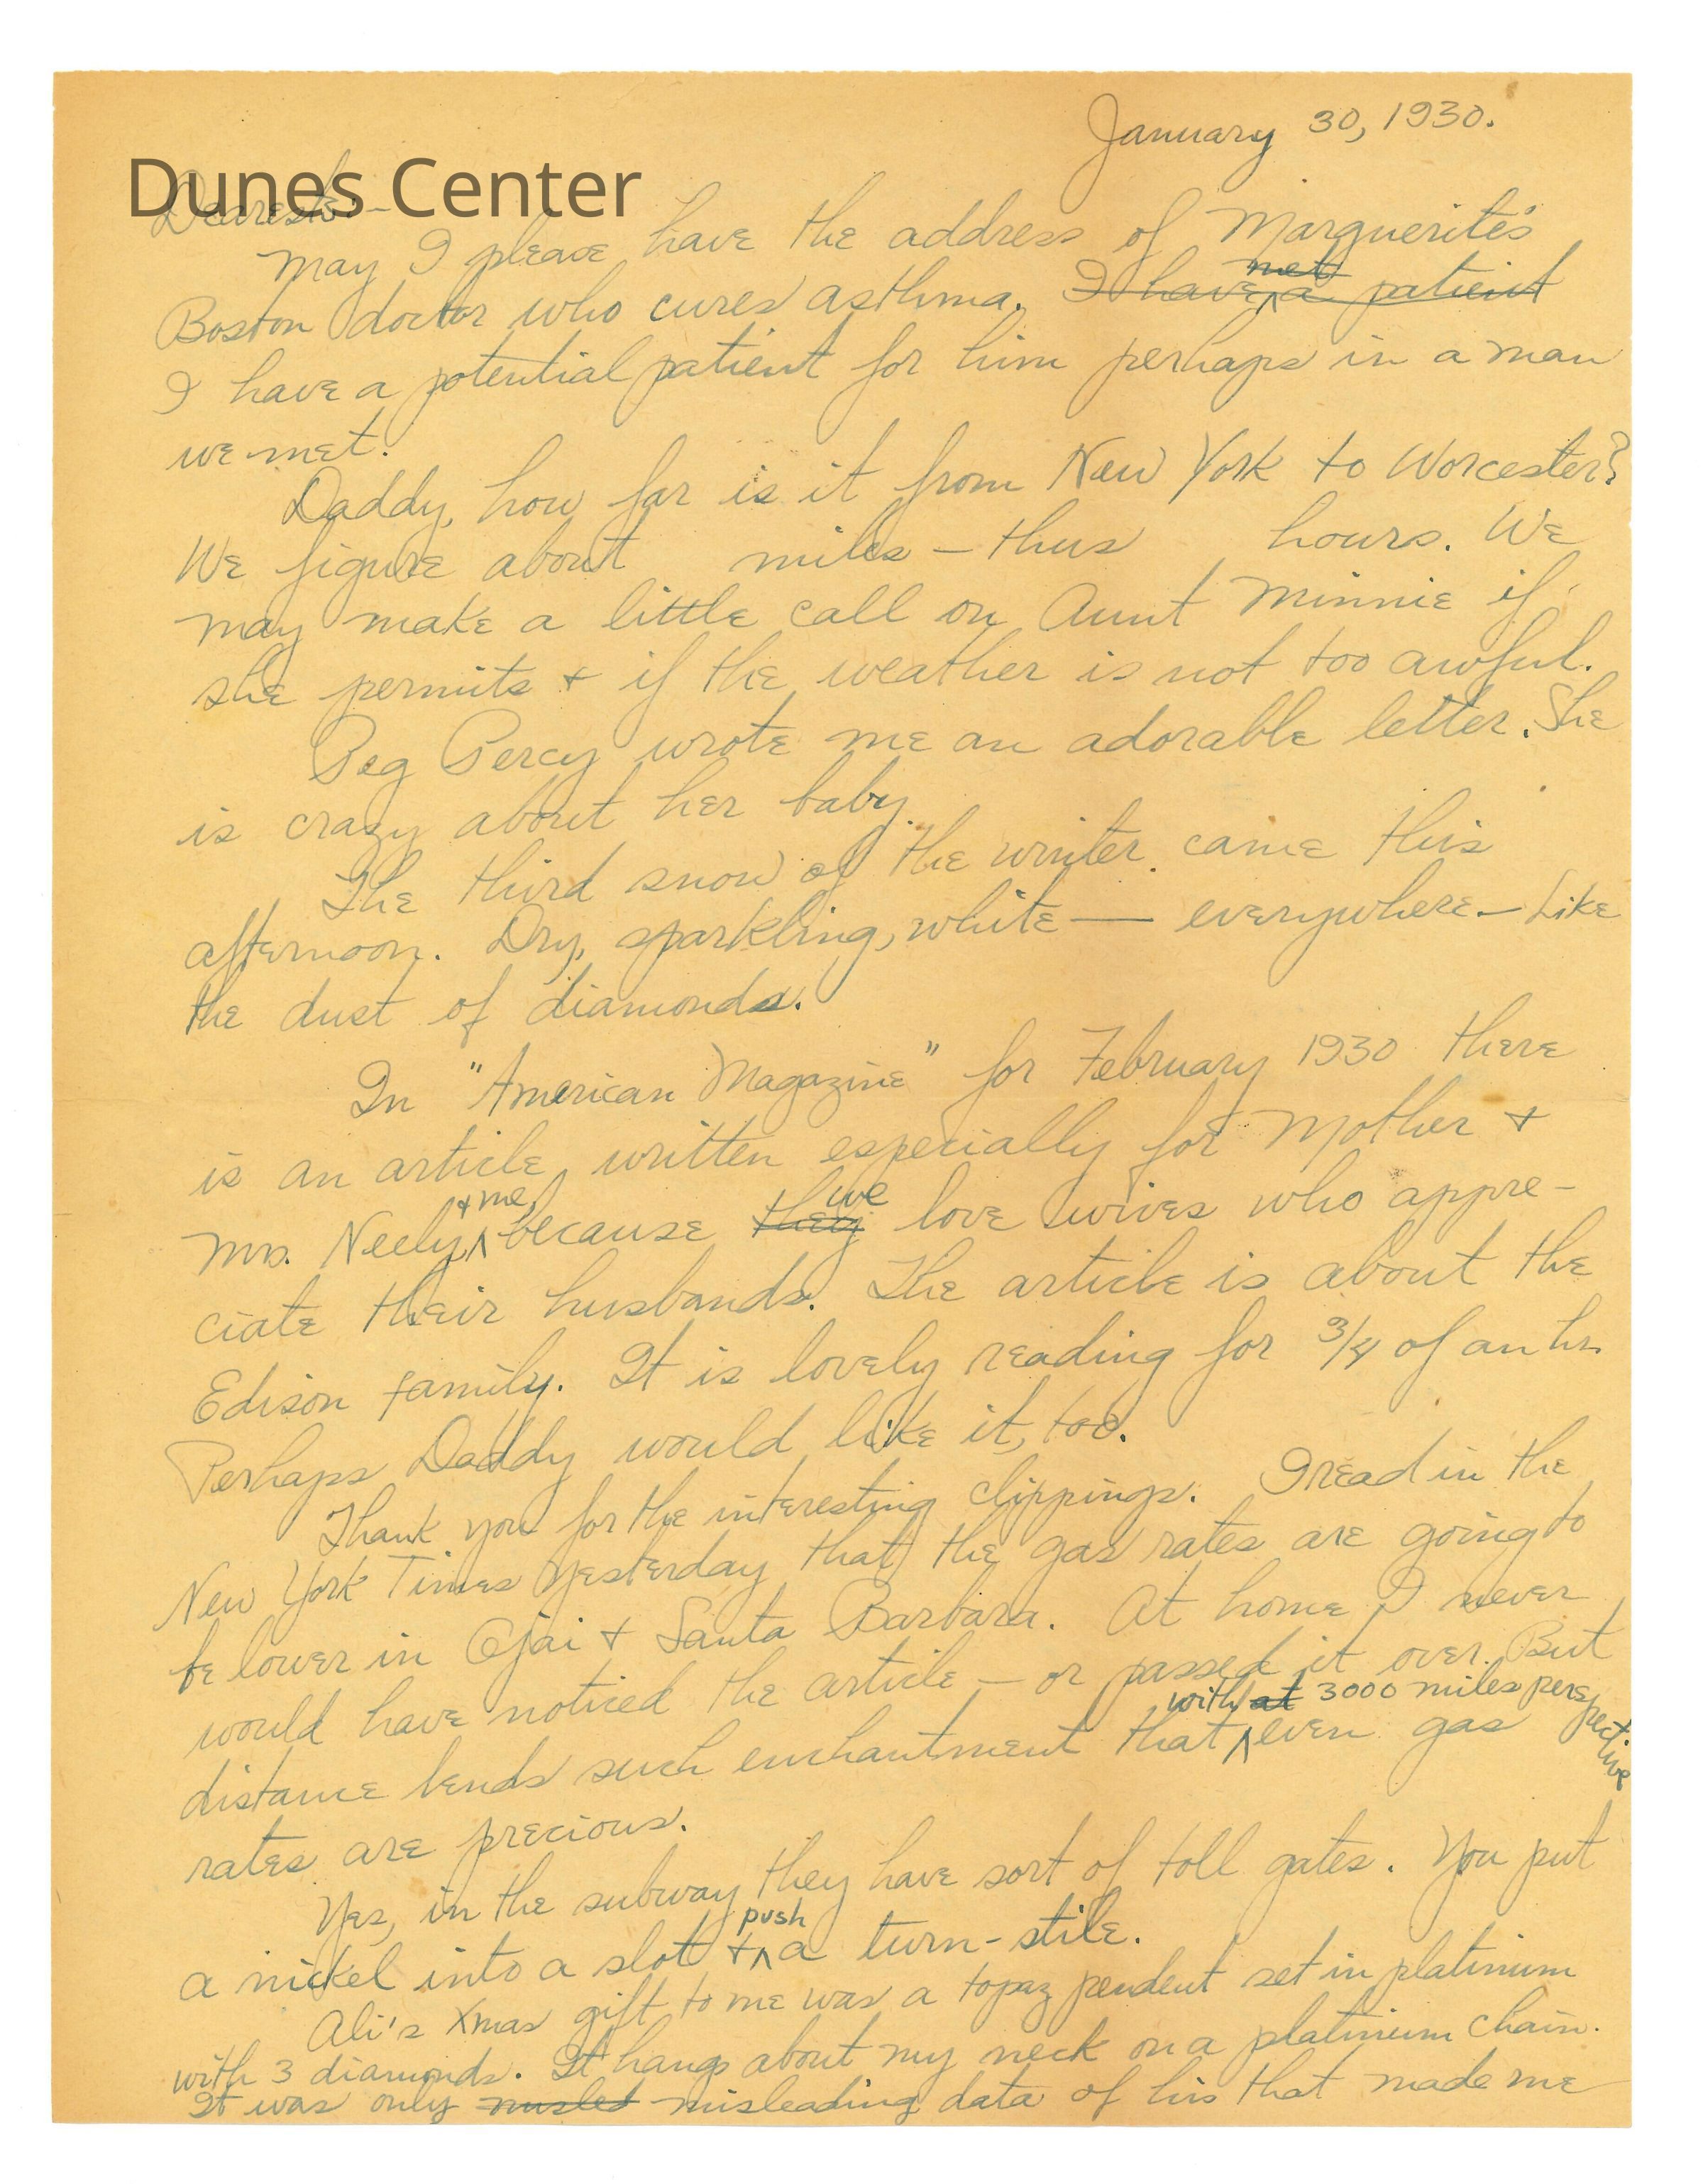 January 30, 1930.
Dunes Center
Dearests:-
May I please have the address of Marguerite's
Boston doctor who cures asthma. I have met a patient
I have a potential patient for him perhaps in a man
we met.
Daddy, how far is it from New York to Worcester?
We figure about miles - thus hours. We
may make a little call on Aunt Minnie if
she permits + if the weather is not too awful.
Peg Percy wrote me an adorable letter. She
is crazy about her baby.
The third snow of the winter came this
afternoon. Dry, sparkling, white — everywhere - Like
the dust of diamonds.
In "American Magazine" for February 1930 there
is an article, written especially for Mother +
Mrs. Neely, + me, because they we love wives who appre-
ciate their husbands. The article is about the
Edison family. It is lovely reading for 3/4 of an hr.
Perhaps Daddy would like it, too.
Thank you for the interesting clippings. I read in the
New York Times yesterday that the gas rates are going to
be lower in Ojai + Santa Barbara. At home I never
would have noticed the article - or passed it over. But
distance lends such enchantment that with at 3000 miles perspective even gas
rates are precious.
Yes, in the subway they have sort of toll gates. You put
a nickel into a slot + push a turn-stile.
Ali's Xmas gift to me was a topaz pendent set in platinum
with 3 diamonds. It hangs about my neck on a platinum chain.
It was only misled misleading data of his that made me